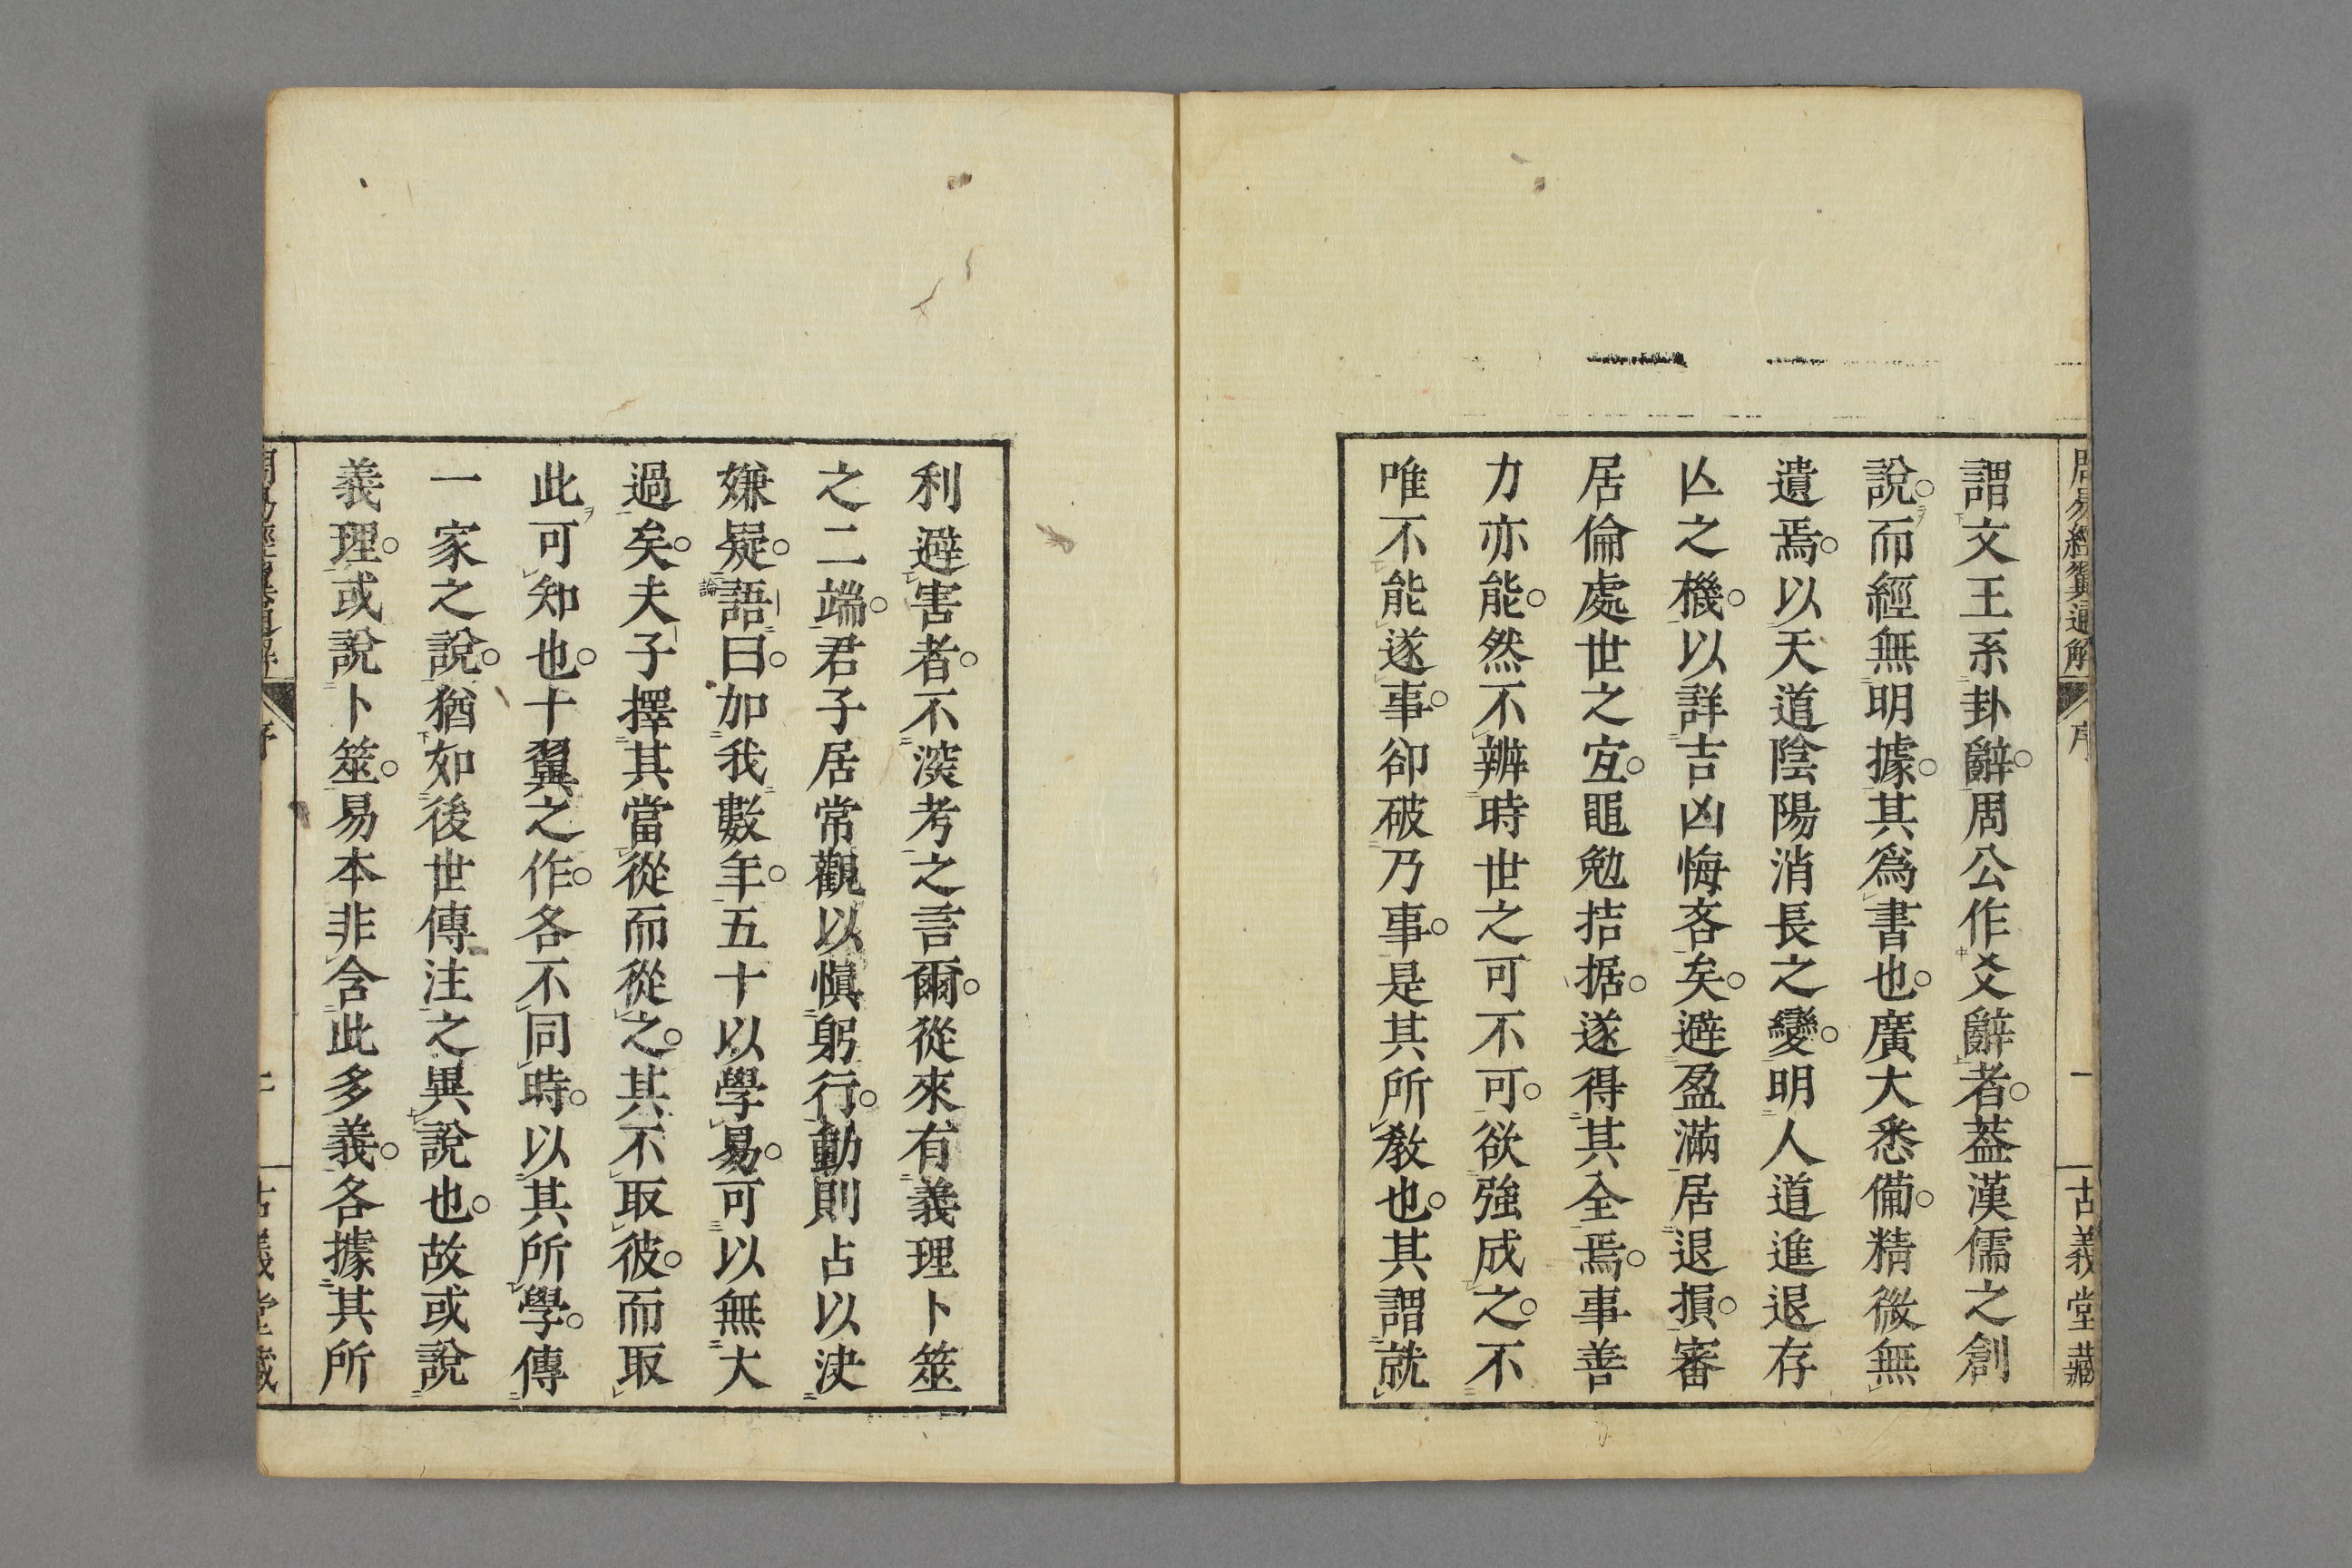 周易經翼通解 序 一 古義堂藏
謂文王系卦辭。周公作爻辭者。葢漢儒之創
說。而經無明據。其爲書也。廣大悉僃。精微無
遺焉。以天道陰陽消長之變。明人道進退存
亾之機。以詳吉凶悔吝矣。避盈滿居退損。審
居倫處世之宐。黽勉拮据。遂得其全焉。事善
力亦能。然不辨時世之可不可。欲強成之。不
唯不能遂事。卻破乃事。是其所敎也。其謂就
利避害者。不深考之言爾。從來有義理卜筮
之二端。君子居常觀以愼躬行。動則占以決
嫌疑。論語曰。加我數年。五十以學易。可以無大
過矣。夫子擇其當從而從之。其不取彼。而取
此可知也。十翼之作。各不同時。以其所學。傳
一家之說。猶如後世傳注之異說也。故或說
義理。或說卜筮。易本非含此多義。各據其所
周易經翼通解 序 古義堂藏